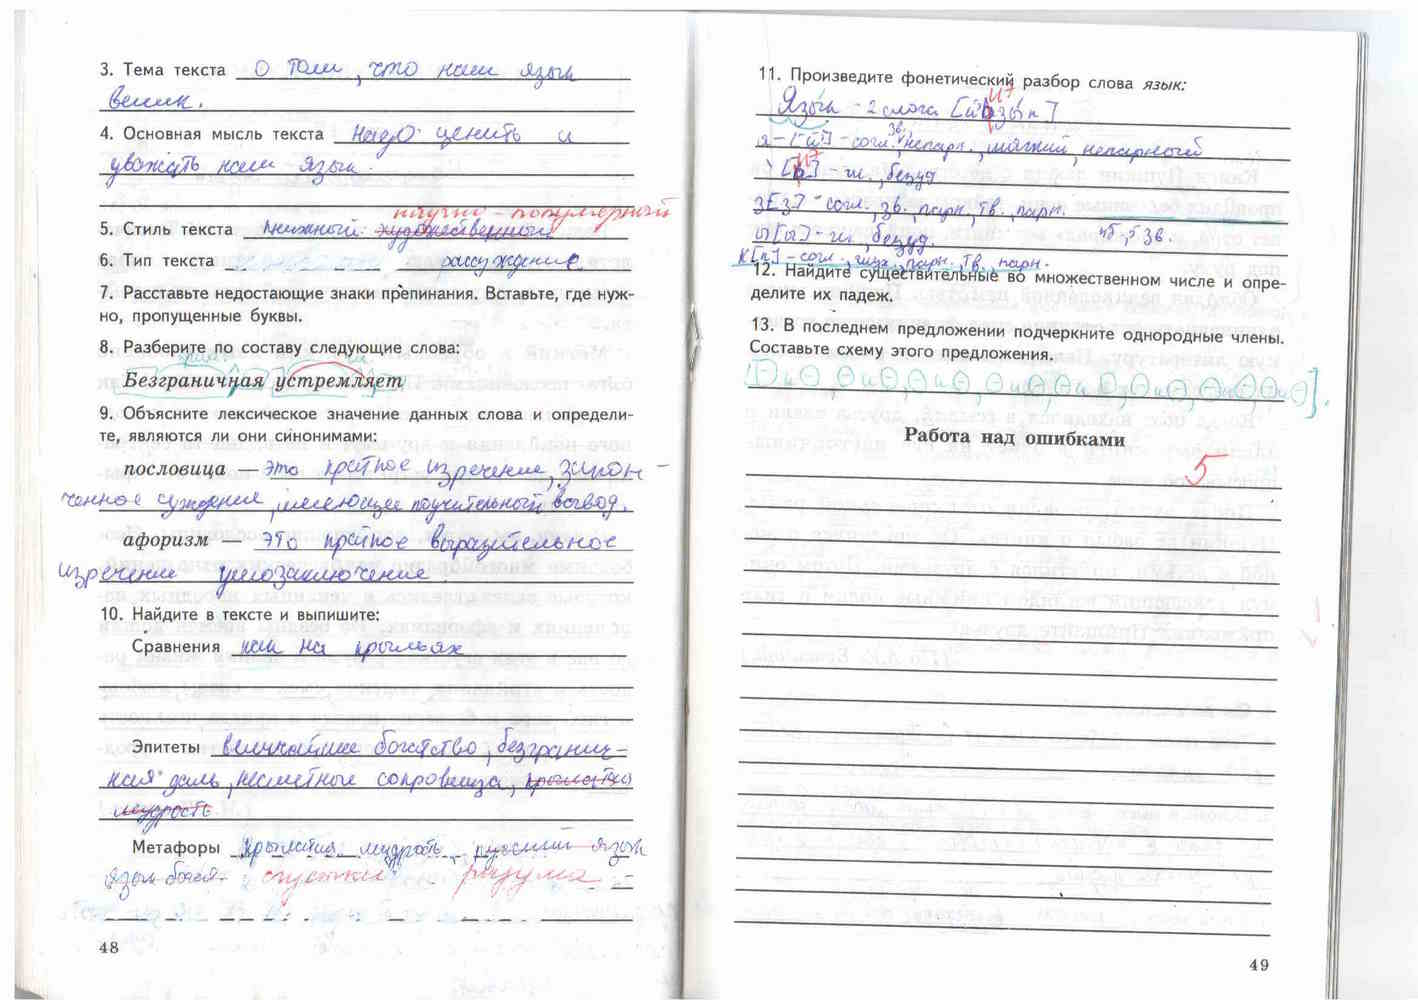 3. Тема текста О том, что наш язык
велик.
4. Основная мысль текста Надо ценить и
уважать наш язык.
научно-популярный
5. Стиль текста книжный художественный
6. Тип текста рассуждение.
7. Расставьте недостающие знаки препинания. Вставьте, где нуж-
но, пропущенные буквы.
8. Разберите по составу следующие слова:
Безграничная устремляет
9. Объясните лексическое значение данных слова и определи-
те, являются ли они синонимами:
пословица — это краткое изречение, закон-
ченное суждение, имеющее поучительный вывод.
афоризм — это краткое выразительное
изречение умозаключение
10. Найдите в тексте и выпишите:
Сравнения как на крыльях
Эпитеты величайшее богатство, безгранич-
ная даль, несметные сокровища, крылатая
мудрость
Метафоры крылатая мудрость, русский язык
язык богат сгустки разума
48
11. Произведите фонетический разбор слова язык:
Язык - 2 слога
я - [й'] - согл., зв., непарн., мягкий, непарный
[и] - гл., безуд.
з [з] - согл., зв., парн., тв., парн.
ы [ы] - гл., безуд. 4б., 5 зв.
к [к] - согл., глух., парн., тв., парн.
12. Найдите существительные во множественном числе и опре-
делите их падеж.
13. В последнем предложении подчеркните однородные члены.
Составьте схему этого предложения.
Работа над ошибками
5
49